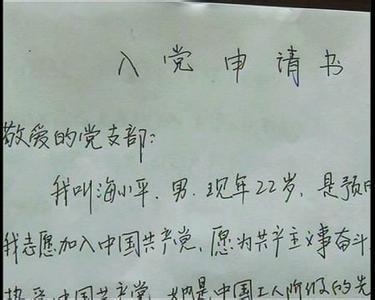 入党申请书
敬爱的党支部：
我叫海小平、男、现年22岁，是预
我志愿加入中国共产党，愿为共产主义事奋斗
热爱中国共产党，她是中国工人阶级的先